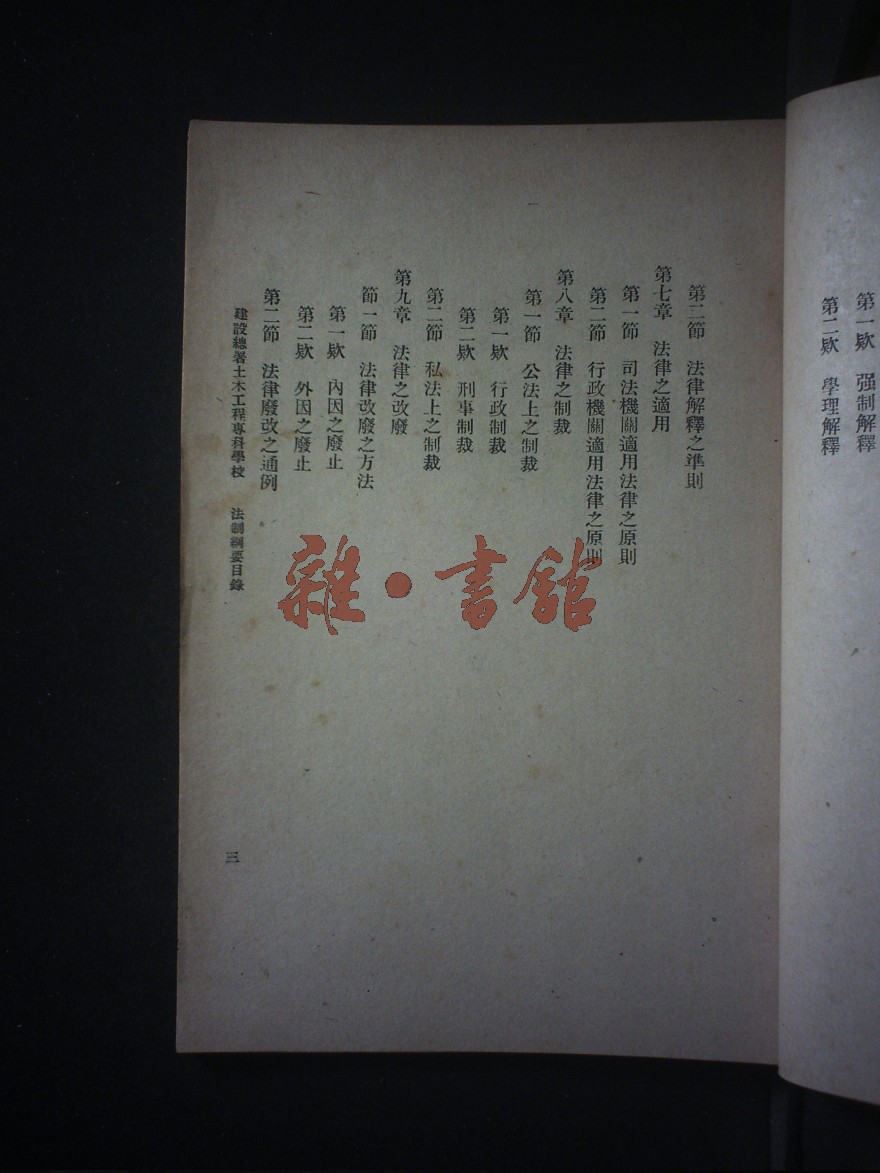 第一欵　强制解釋
第二欵　學理解釋
第二節　法律解釋之準則
第七章　法律之適用
第一節　司法機關適用法律之原則
第二節　行政機關適用法律之原則
第八章　法律之制裁
第一節　公法上之制裁
第一欵　行政制裁
第二欵　刑事制裁
第二節　私法上之制裁
第九章　法律之改廢
節一節　法律改廢之方法
第一欵　內因之廢止
第二欵　外因之廢止
第二節　法律廢改之通例
建設總署土木工程專科學校　法制綱要目錄
三
雜·書館